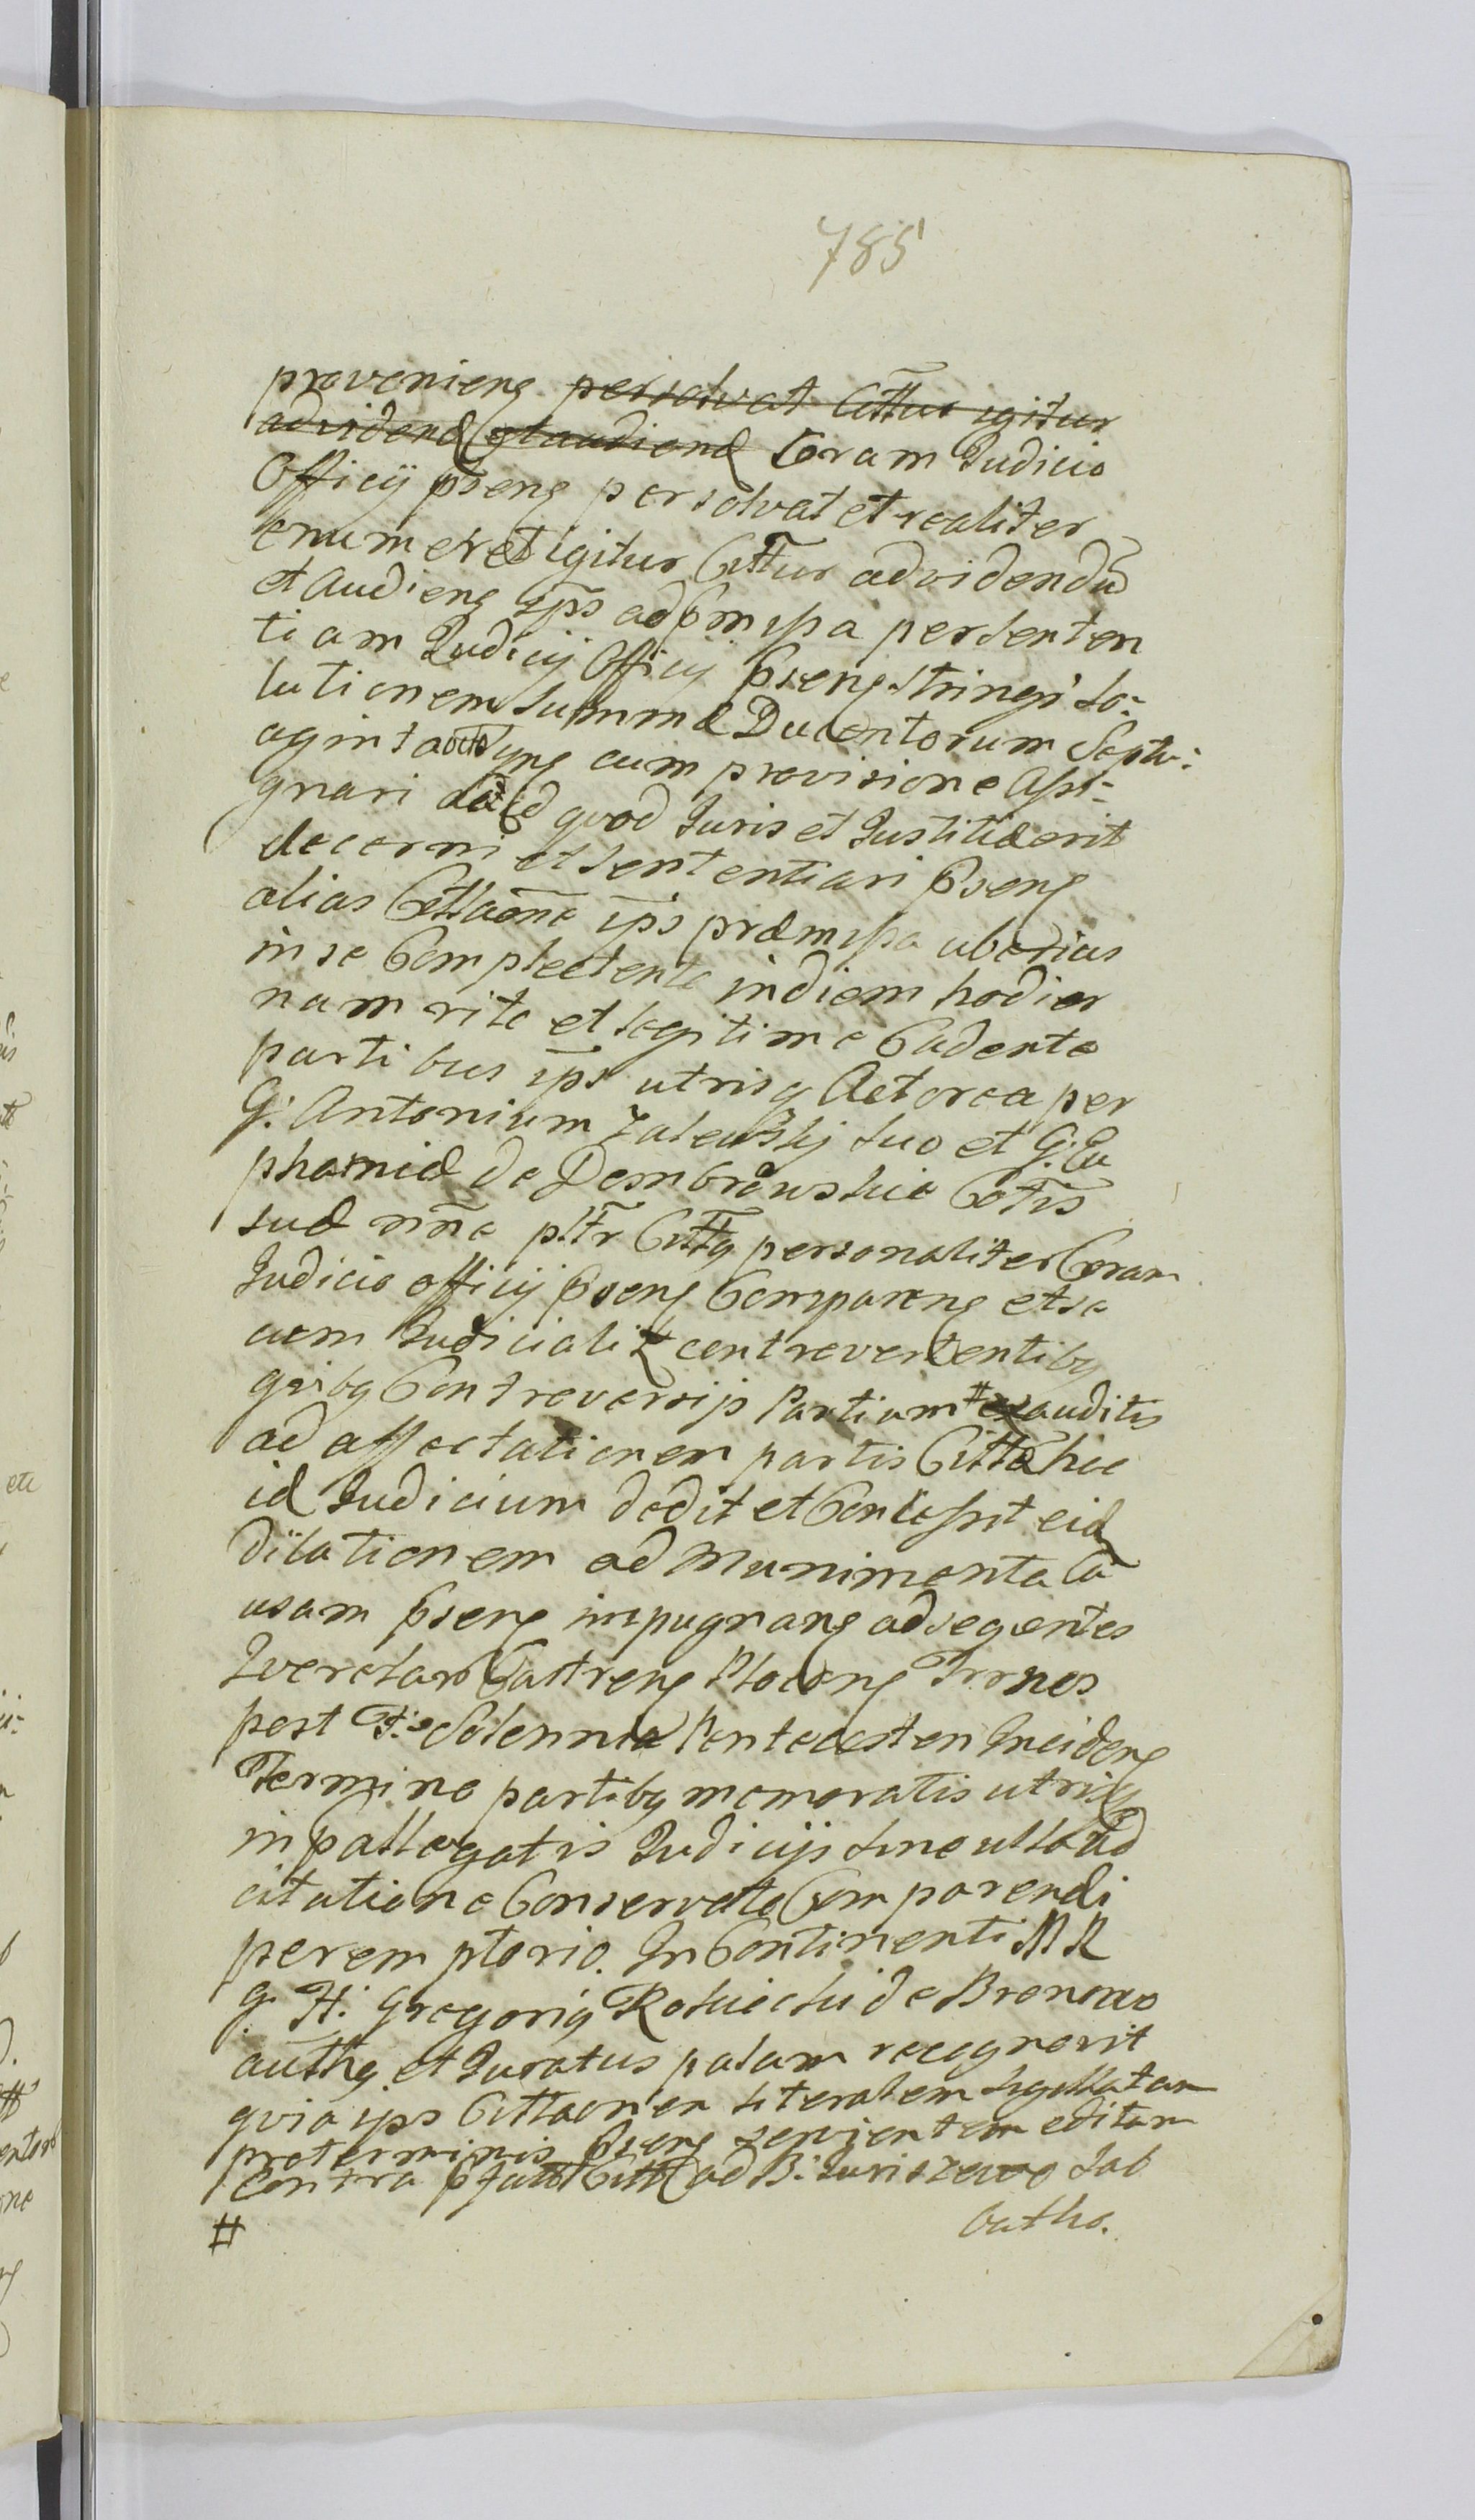 785
provenieng persolvat Cittur igitur
advidend et audiend Coram Judicio
Officij pseng persolvat et realiter
enumeret igitur Cittur advidendu
et audieng ips ad pmissa per senten
tiam Judicij Officij pseng stringi so-
lutionem summæ Ducentorum Septu-
aginta octo cum provisione assi-
gnari quod Juris et Justitiæ erit
decerni et sententiari pseng
alias Cittaone ips præmissa uberius
in se Complectente in diem hodier
nam rite et legitime Cadente
partibus ips utrisq Actorea per
G. Antonium Zalewskj suo et G. Eu
phamiæ de Dembrowskie Cotis
suæ nine pltr Citta personaliter Coram
Judicio officij pseng Compareng et se
cum Judicialit controvertentibq
quibq Controversijs Partium # exauditis
ad affectationem partis Cittæ hoc
id Judicium dedit et Concessit eid
dilationem ad Munimenta Ca
usam pseng impugnang ad seqentes
Querelar Castreng Ploceng Trnos
post F. Solennia Pentecosten Incideng
Termino partibq memoratis utrisq
in pallegatis Judicijs sine ulla ad
citatione Conservato Comparendi
peremptorio. In Continenti MR
g. H. Gregoriq Rokicki de Bronowo
authq et Juratus palam recognovit
quia ips Cittaonem literalem sigillatam
pro terminis pseng servientem editam
contra pfatæ Cittæ ad B. Juriszewo Sab
batho.
#